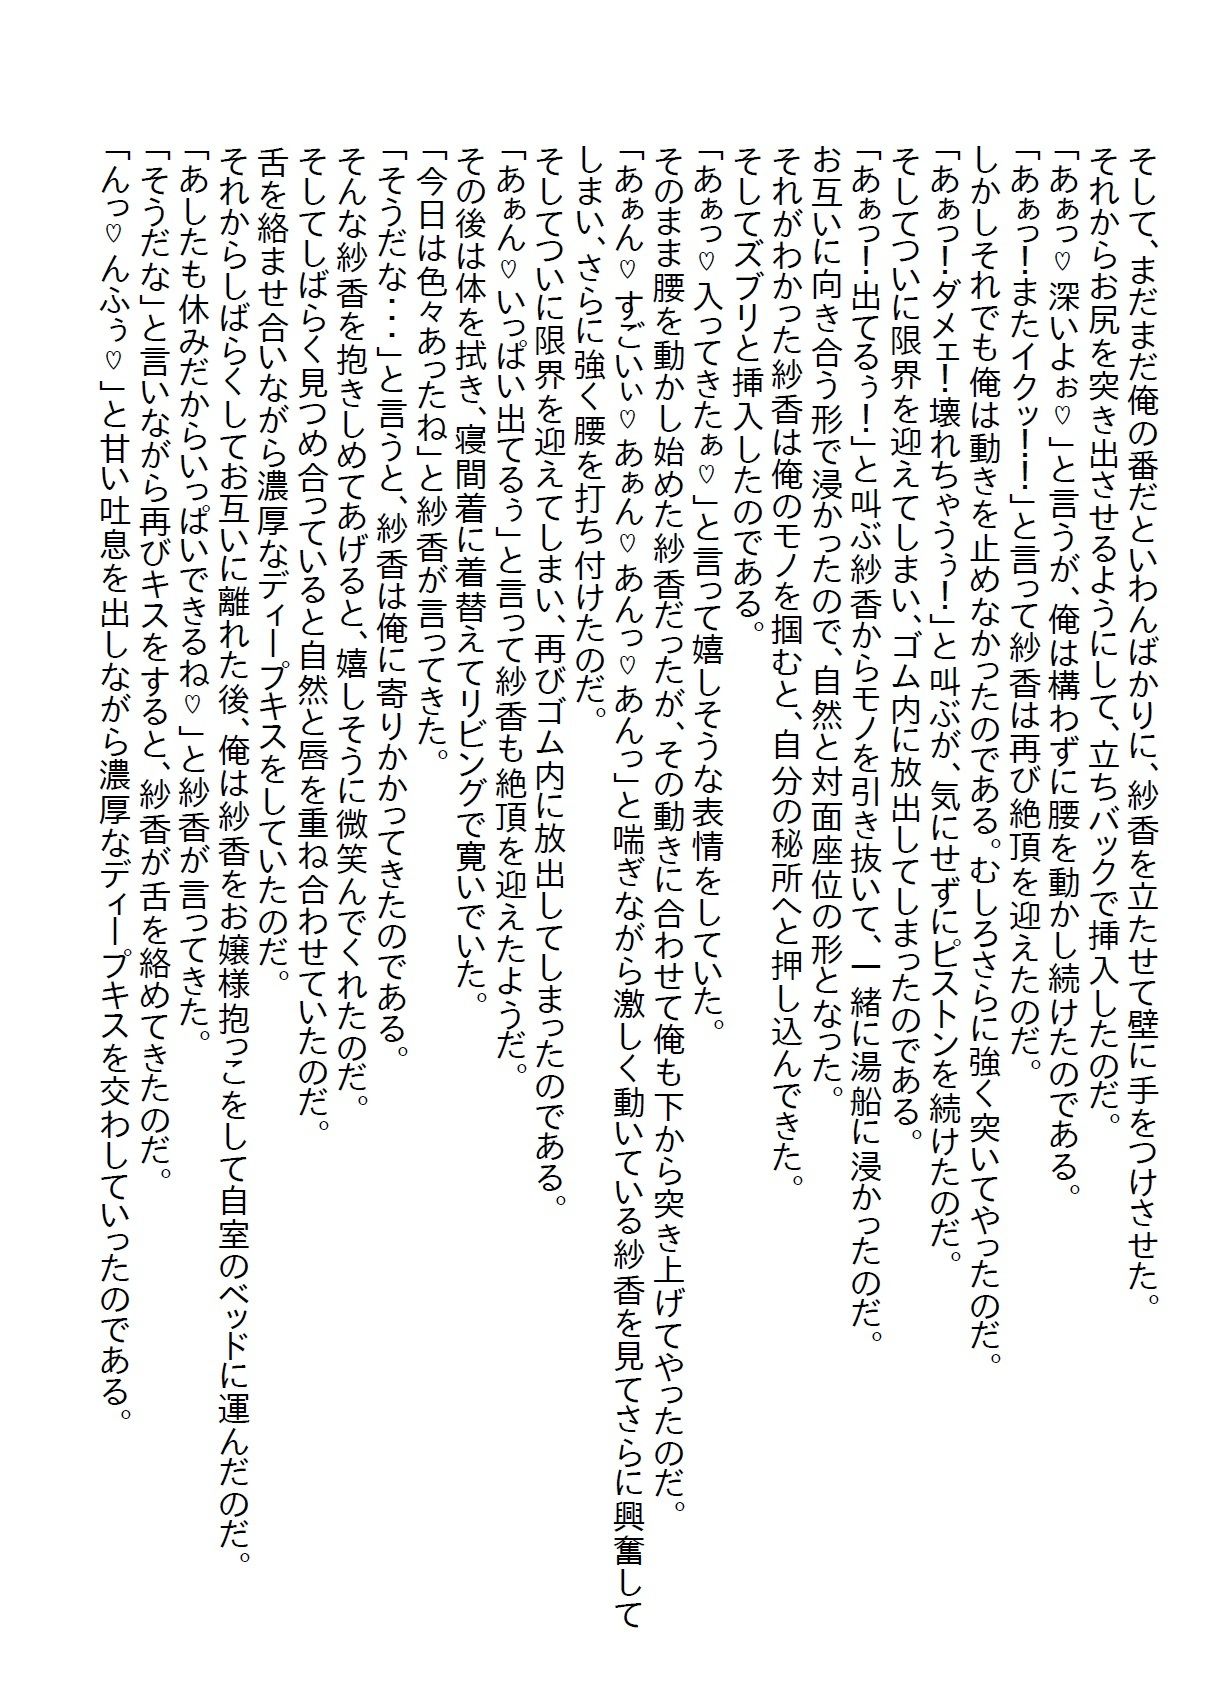 そして、まだまだ俺の番だといわんばかりに、紗香を立たせて壁に手をつけさせた。
それからお尻を突き出させるようにして、立ちバックで挿入したのだ。
「あぁっ♡深いよぉ♡」と言うが、俺は構わずに腰を動かし続けたのである。
「あぁっ！またイクッ！！！」と言って紗香は再び絶頂を迎えたのだ。
しかしそれでも俺は動きを止めなかったのである。むしろさらに強く突いてやったのだ。
「あぁっ！ダメェ！壊れちゃうぅ！」と叫ぶが、気にせずにピストンを続けたのだ。
そしてついに限界を迎えてしまい、ゴム内に放出してしまったのである。
「あぁっ！出てるぅ！」と叫ぶ紗香からモノを引き抜いて、一緒に湯船に浸かったのだ。
お互いに向き合う形で浸かったので、自然と対面座位の形となった。
それがわかった紗香は俺のモノを掴むと、自分の秘所へと押し込んできた。
そしてズブリと挿入したのである。
「あぁっ♡入ってきたぁ♡」と言って嬉しそうな表情をしていた。
そのまま腰を動かし始めた紗香だったが、その動きに合わせて俺も下から突き上げてやったのだ。
「あぁん♡すごいぃ♡あぁん♡あんっ♡あんっ」と喘ぎながら激しく動いている紗香を見てさらに興奮して
しまい、さらに強く腰を打ち付けたのだ。
そしてついに限界を迎えてしまい、再びゴム内に放出してしまったのである。
「あぁん♡いっぱい出てるぅ」と言って紗香も絶頂を迎えたようだ。
その後は体を拭き、寝間着に着替えてリビングで寛いでいた。
「今日は色々あったね」と紗香が言ってきた。
「そうだな・・・」と言うと、紗香は俺に寄りかかってきたのである。
そんな紗香を抱きしめてあげると、嬉しそうに微笑んでくれたのだ。
そしてしばらく見つめ合っていると自然と唇を重ね合わせていたのだ。
舌を絡ませ合いながら濃厚なディープキスをしていたのだ。
それからしばらくしてお互いに離れた後、俺は紗香をお嬢様抱っこをして自室のベッドに運んだのだ。
「あしたも休みだからいっぱいできるね♡」と紗香が言ってきた。
「そうだな」と言いながら再びキスをすると、紗香が舌を絡めてきたのだ。
「んっ♡んふぅ♡」と甘い吐息を出しながら濃厚なディープキスを交わしていったのである。